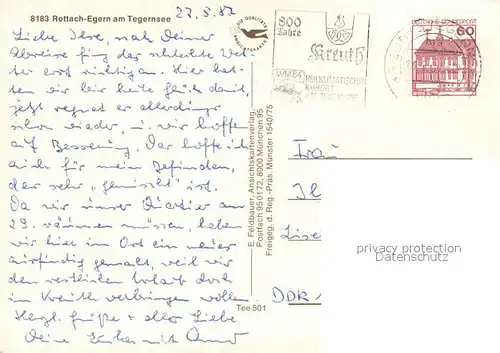 8183 Rottach-Egern am Tegernsee
27.5.87
Liebe Ilse, nach Deiner
Abreise fing das schlechte Wet-
ter erst richtig an. Hier hat-
ten wir bis heute Glück damit,
jetzt regnet es allerdings
schon wieder, u. wir hoffen
auf Besserung. Das hoffe ich
auch für mein Befinden,
das sehr „gemischt" ist.
Da wir unser Quartier am
29. räumen müssen, haben
wir hier im Ort ein neues
ausfindig gemacht, weil wir
den restlichen Urlaub doch
in Kreuth verbringen wollen
Herzl. Grüße + alles Liebe
Deine
DIE QUALITÄTS
ANSICHTSKARTE
E. Feldbauer, Ansichtskartenverlag,
Postfach 95 01 72, 8000 München 95
Freigeg. d. Reg.-Präs. Münster 1540/75
Tee 501
800
Jahre
Kreuth
HEILKLIMATISCHER
KURORT
DEUTSCHE BUNDESPOST
60
Frau
Il
Lise
DDR-
privacy protection
Datenschutz